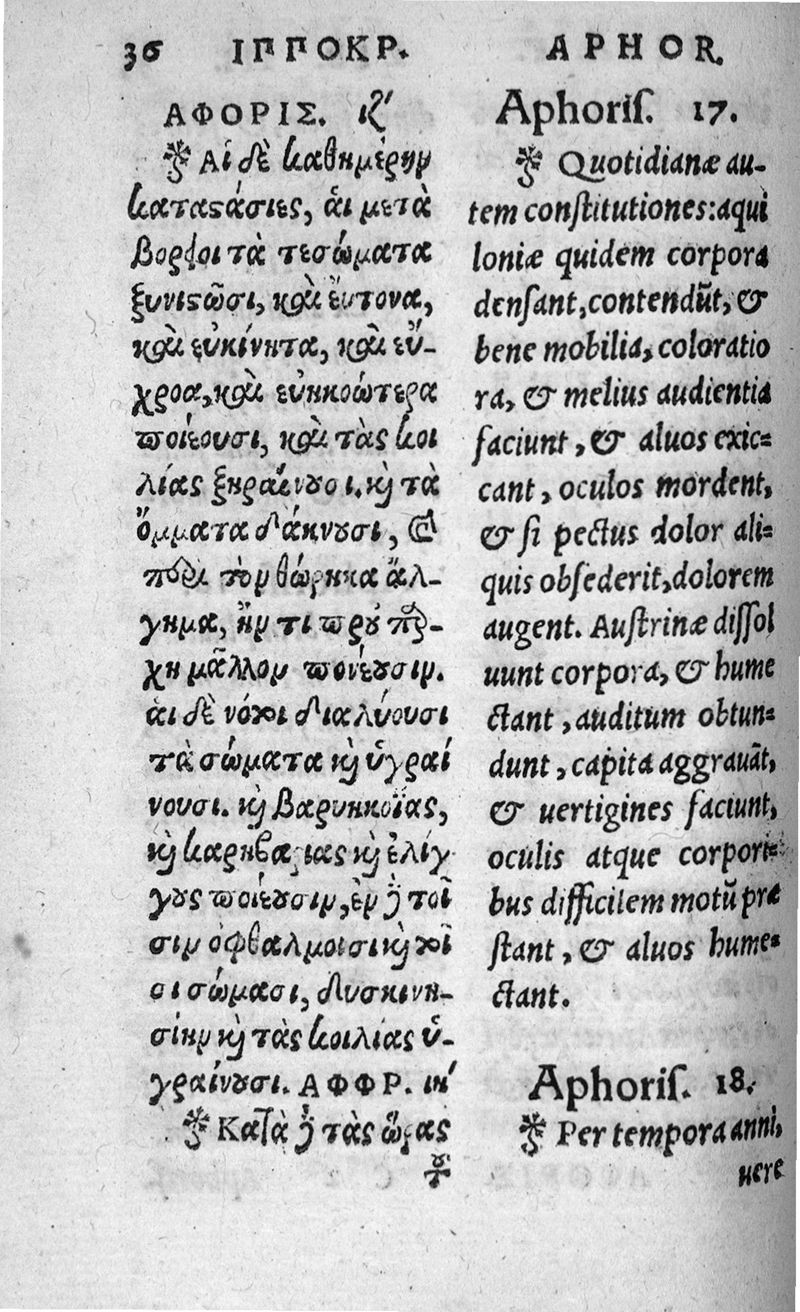 36 ΙΠΠΟΚΡ. APHOR.
ΑΦΟΡΙΣ. ιζ′
Αἱ δὲ καθημέρην
καταστάσιες, ἁι μετὰ
βορέοι τὰ τε σώματα
ξυνιστῶσι, καὶ ἔυτονα,
καὶ ἐυκίνητα, καὶ εὔ-
χροα, καὶ εὐηκοώτερα
ποιέουσι, καὶ τὰς κοι
λίας ξηραίνουσι. καὶ τὰ
ὄμματα δάκνουσι, καὶ
περὶ τὸν θώρηκα ἄλ-
γημα, ἤν τι προϋπάρ-
χη μᾶλλον πονέουσιν.
ἁι δὲ νότοι διαλύουσι
τὰ σώματα καὶ ὑγραί
νουσι. καὶ βαρυηκοΐας,
καὶ καρηβαρίας καὶ ἐλίγ
γους ποιέουσιν, ἐν δὲ τοῖ
σιν ὀφθαλμοισι καὶ τοῖ
σι σώμασι, δυσκινη-
σίην καὶ τὰς κοιλίας ὑ-
γραίνουσι. ΑΦΦΡ. ιη′
Κατὰ δὲ τὰς ὥρας
τοῦ
Aphoris. 17.
Quotidianæ au-
tem constitutiones: aqui
loniæ quidem corpora
densant, contendũt, &
bene mobilia, coloratio
ra, & melius audientia
faciunt, & aluos exic=
cant, oculos mordent,
& si pectus dolor ali=
quis obsederit, dolorem
augent. Austrinæ dissol
uunt corpora, & hume
ctant, auditum obtun=
dunt, capita aggrauãt,
& uertigines faciunt,
oculis atque corpori=
bus difficilem motũ præ
stant, & aluos hume=
ctant.
Aphoris. 18.
Per tempora anni,
uere